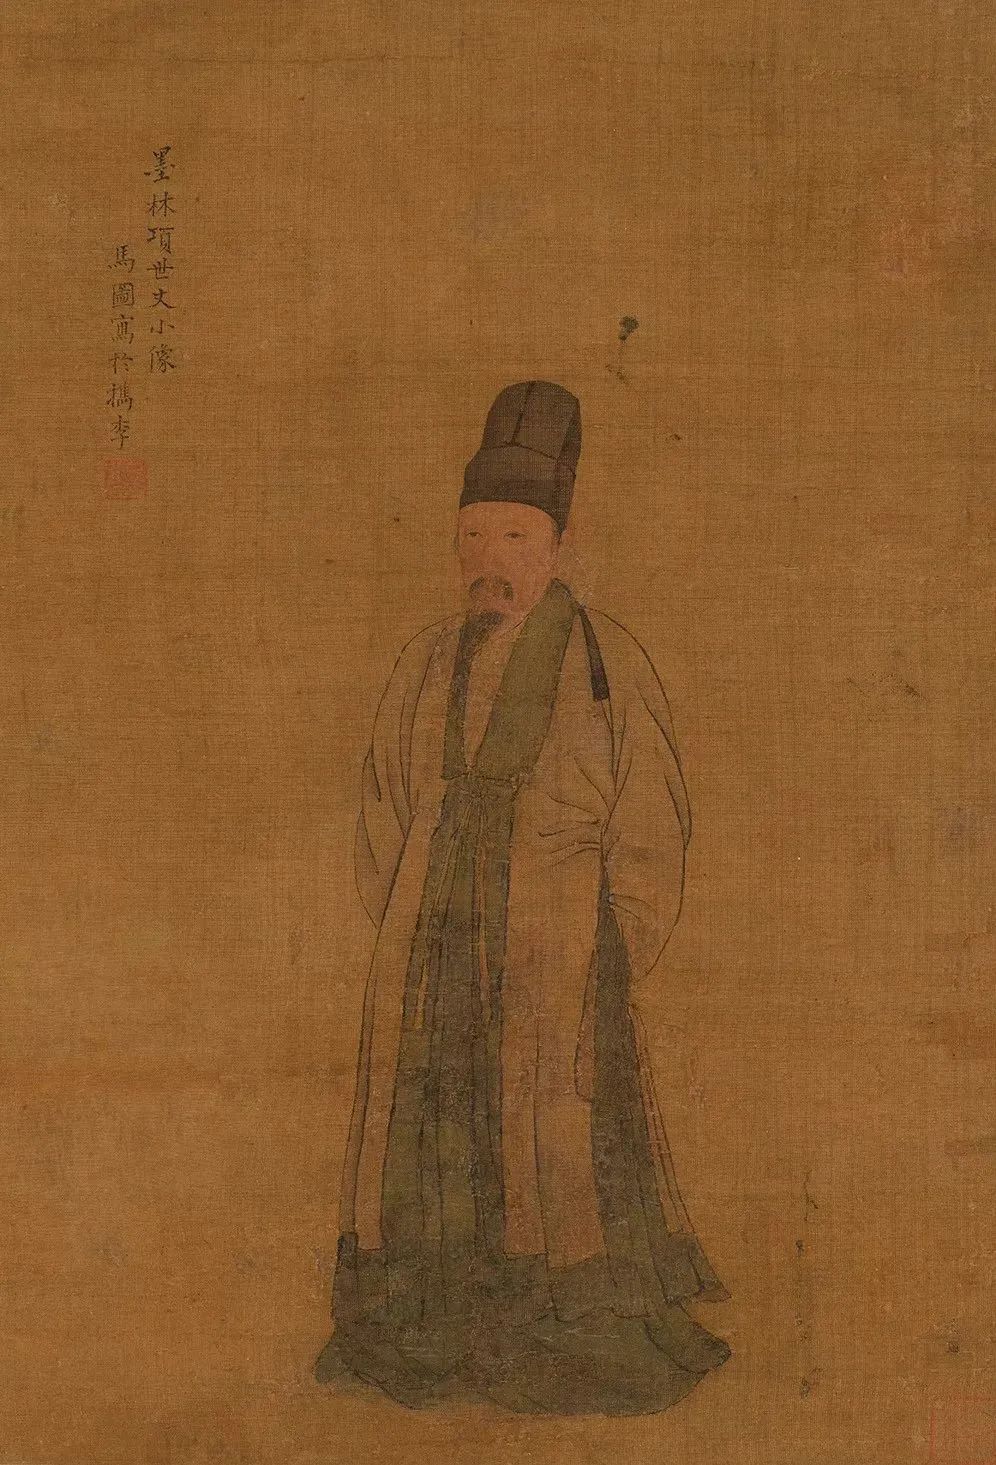 墨林項世丈小像
馬圖寫於檇李